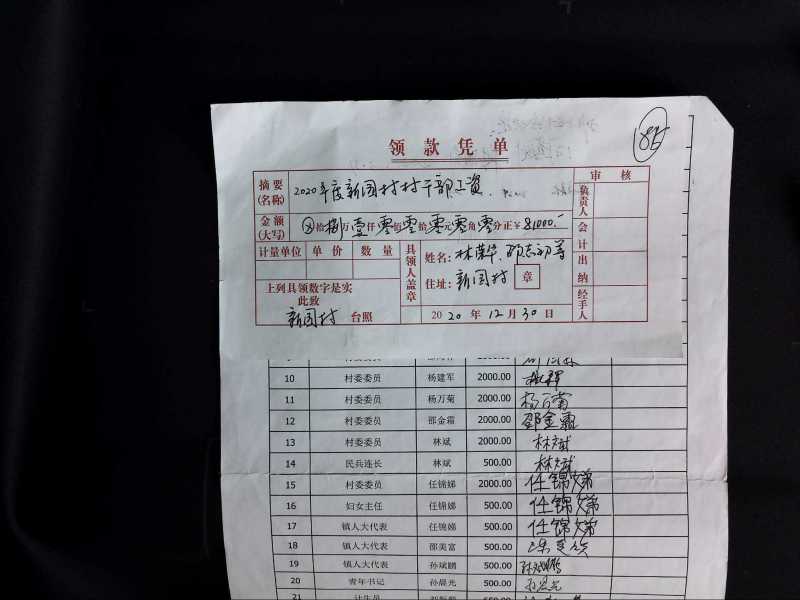 领款凭单
摘要(名称) 2020年度新园村村干部工资 审核
金额(大写) ⊗拾捌万壹仟零佰零拾零元零角零分正¥81000.- 负责人
计量单位 单价 数量 具领人盖章 姓名: 林荣华、 会计
住址: 新园村 章 出纳
上列具领数字是实
此致
新园村 台照 2020年12月30日 经手人
10 村委委员 杨建军 2000.00
11 村委委员 杨万菊 2000.00 杨万菊
12 村委委员 邵金霜 2000.00 邵金霜
13 村委委员 林斌 2000.00 林斌
14 民兵连长 林斌 500.00 林斌
15 村委委员 任锦娣 2000.00 任锦娣
16 妇女主任 任锦娣 500.00 任锦娣
17 镇人大代表 任锦娣 500.00 任锦娣
18 镇人大代表 邵美富 500.00
19 镇人大代表 孙斌鹏 500.00 孙斌鹏
20 青年书记 孙晨光 500.00 孙晨光
21 计生员